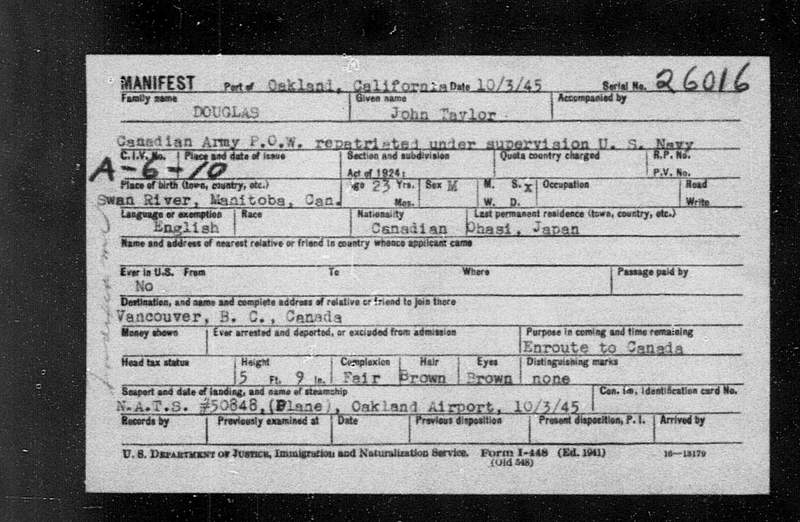 MANIFEST Port of Oakland, California Date 10/3/45 Serial No. 26016
Family name Given name Accompanied by
DOUGLAS John Taylor
Canadian Army P.O.W. repatriated under supervision U. S. Navy
C.I.V. No. Place and date of issue Section and subdivision Quota country charged R.P. No.
A-6-10 Act of 1924: P.V. No.
Place of birth (town, country, etc.) Age 23 Yrs. Sex M M. S. x Occupation Read
Swan River, Manitoba, Can. Mos. W. D. Write
Language or exemption Race Nationality Last permanent residence (town, country, etc.)
English Canadian Ohasi, Japan
Name and address of nearest relative or friend in country whence applicant came
Ever in U.S. From To Where Passage paid by
No
Destination, and name and complete address of relative or friend to join there
Vancouver, B. C., Canada
Money shown Ever arrested and deported, or excluded from admission Purpose in coming and time remaining
Enroute to Canada
Head tax status Height Complexion Hair Eyes Distinguishing marks
5 Ft. 9 In. Fair Brown Brown none
Seaport and date of landing, and name of steamship Con. Im. Identification card No.
N.A.T.S. #50848,(Plane), Oakland Airport, 10/3/45
Records by Previously examined at Date Previous disposition Present disposition, P. I. Arrived by
U. S. DEPARTMENT OF JUSTICE, Immigration and Naturalization Service. Form I-448 (Ed. 1941) 16—13179
(Old 548)